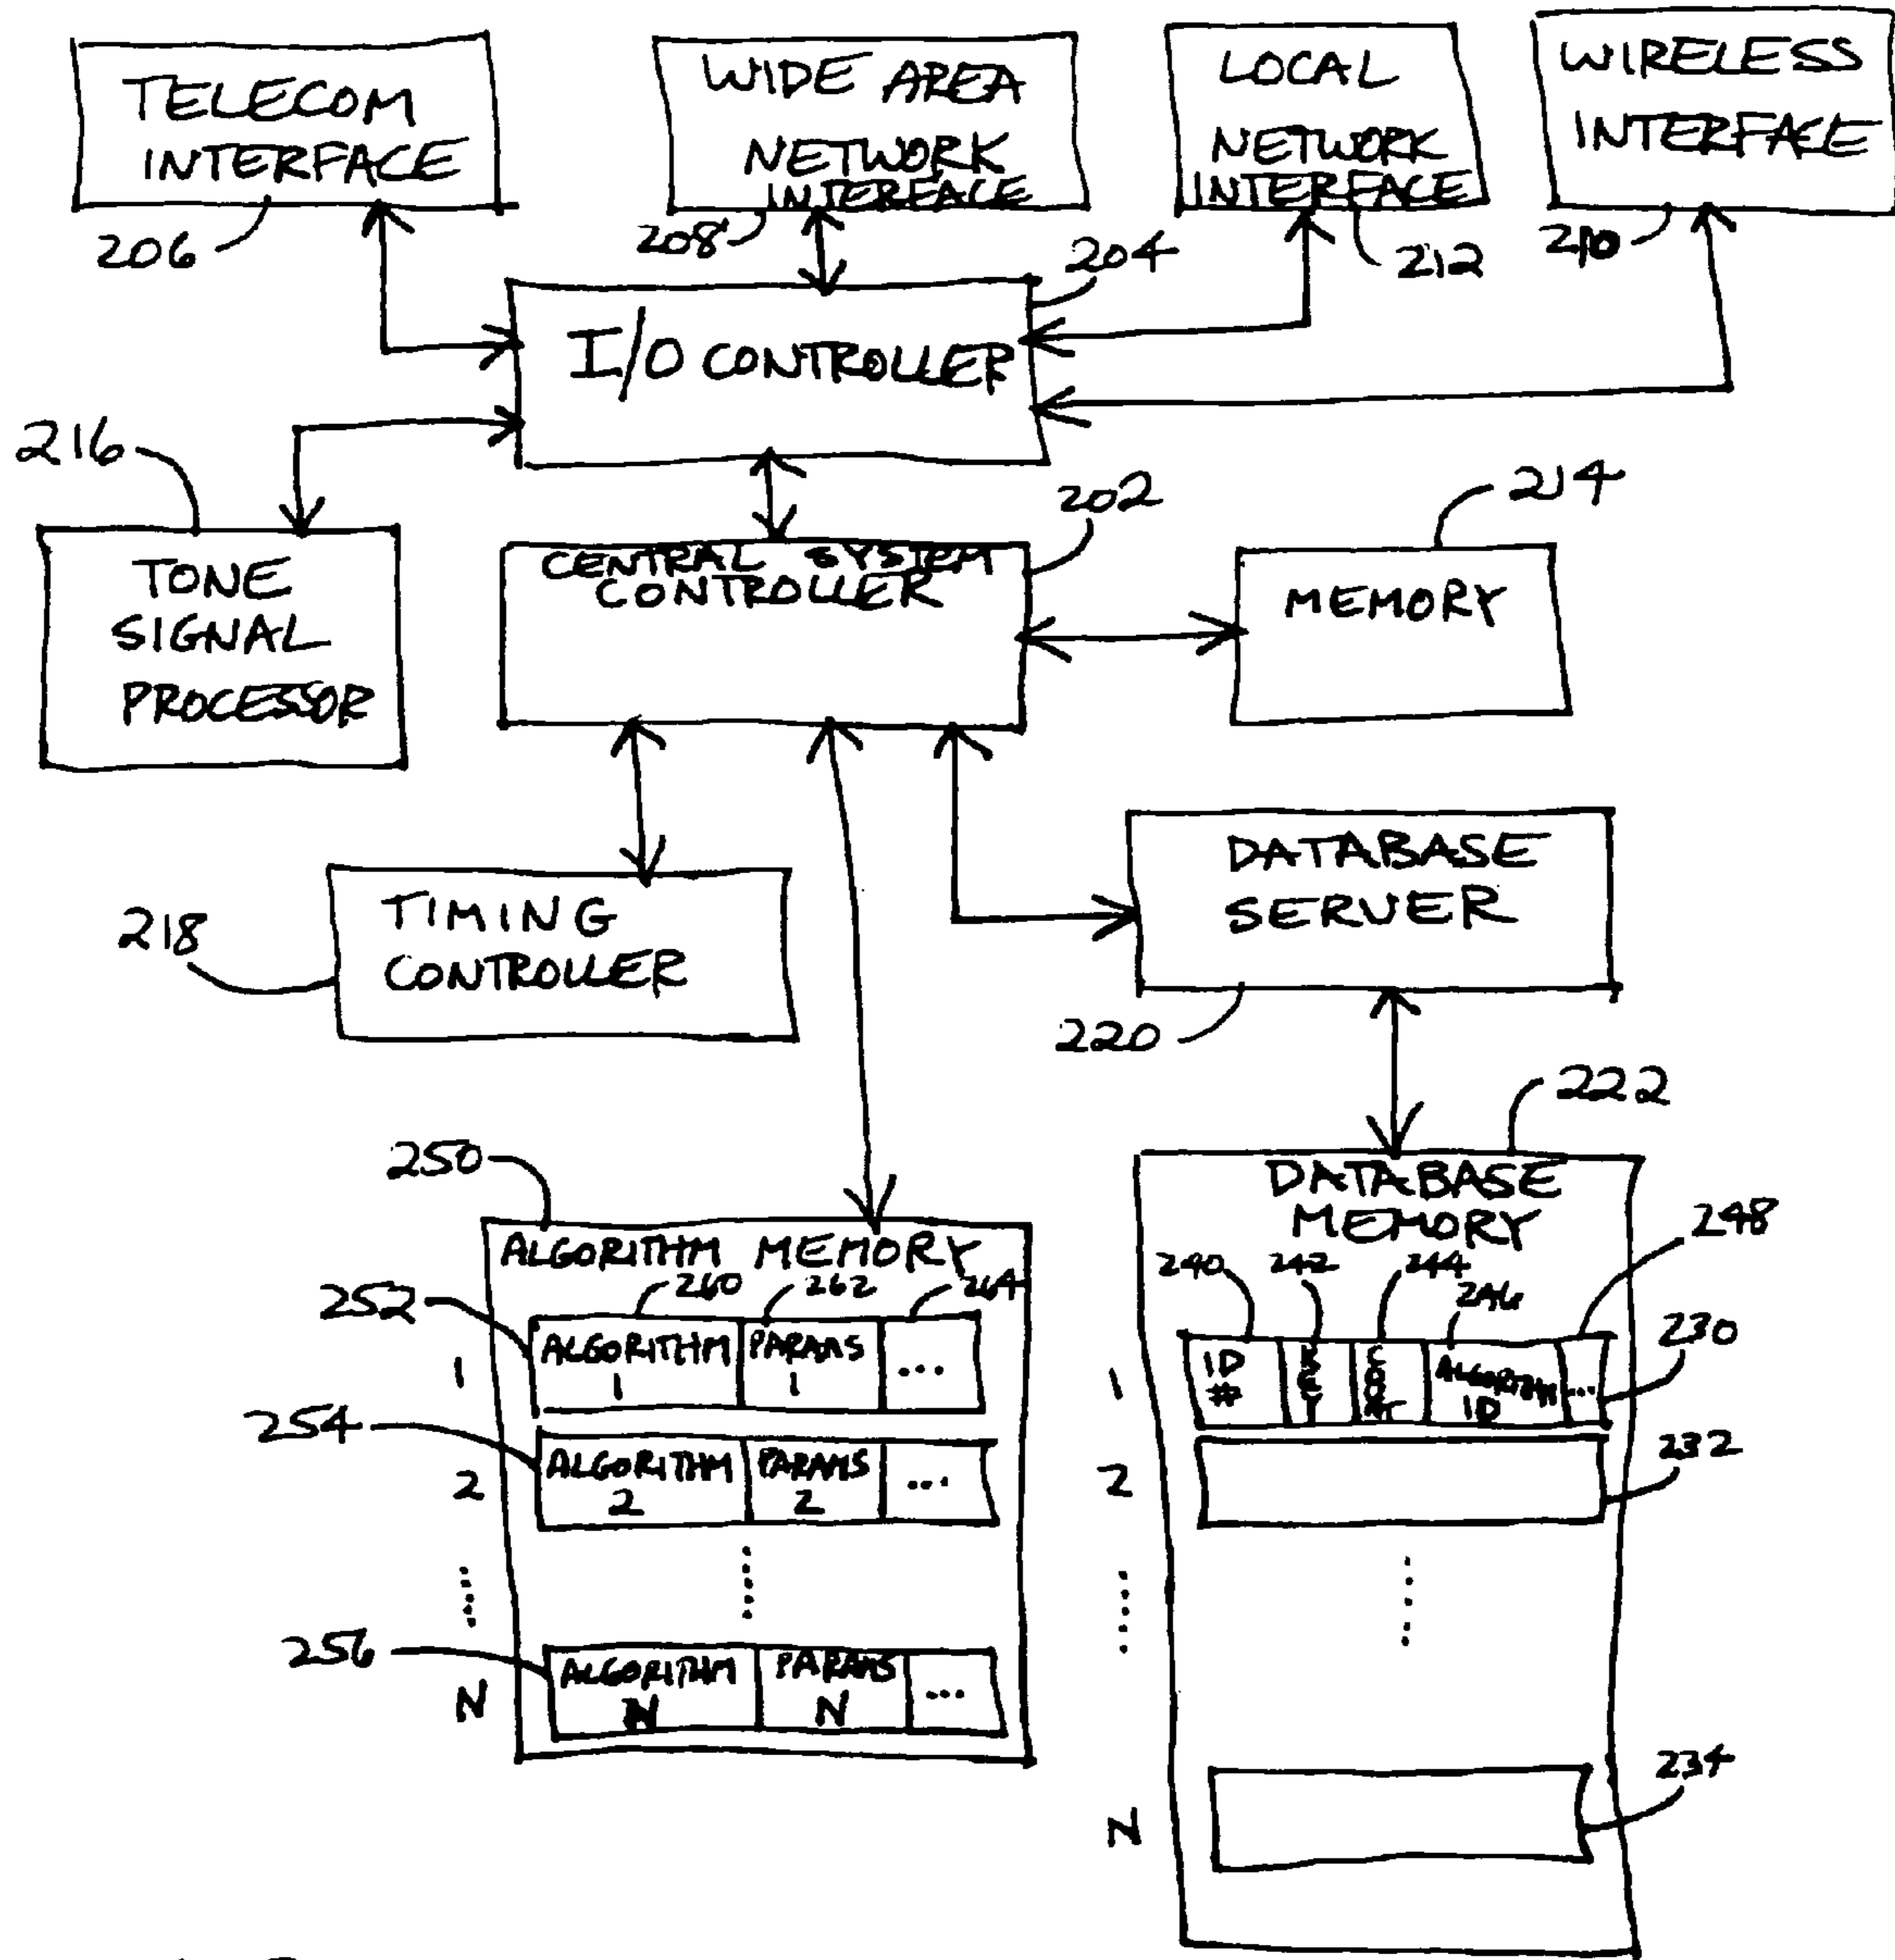 TELECOM
INTERFACE
206
WIDE AREA
NETWORK
INTERFACE
208
LOCAL
NETWORK
INTERFACE
212
WIRELESS
INTERFACE
210
204
I/O CONTROLLER
216
TONE
SIGNAL
PROCESSOR
202
CENTRAL SYSTEM
CONTROLLER
214
MEMORY
218
TIMING
CONTROLLER
DATABASE
SERVER
220
222
250
ALGORITHM MEMORY
260 262 264
252
1
ALGORITHM
1
PARAMS
1
...
254
2
ALGORITHM
2
PARAMS
2
...
256
N
ALGORITHM
N
PARAMS
N
...
DATABASE
MEMORY
248
240 242 244
246
230
1
ID
#
KEY
COUNT
ALGORITHM
ID
...
232
2
234
N